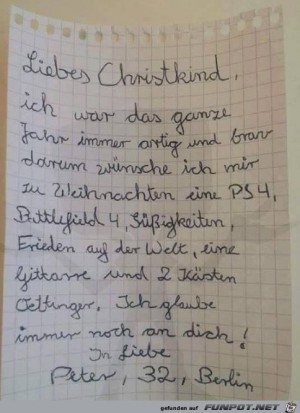 Liebes Christkind,
ich war das ganze
Jahr immer artig und brav
darum wünsche ich mir
zu Weihnachten eine PS4,
Battlefield 4, Süßigkeiten,
Frieden auf der Welt, eine
Gitarre und 2 Kästen
Oettinger. Ich glaube
immer noch an dich!
In Liebe
Peter, 32, Berlin
gefunden auf FUNPOT.NET